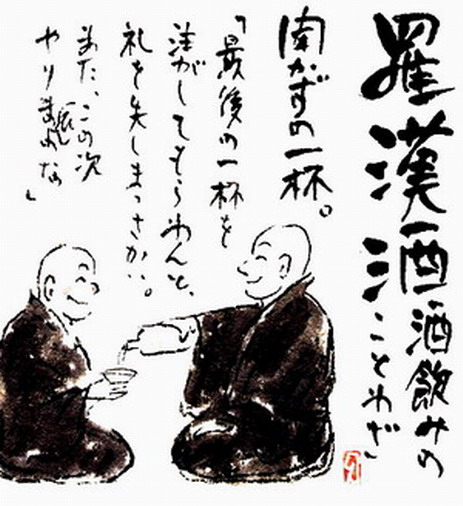 羅漢酒
酒飲みの
ことわざ」
かずの一杯。
「最後の一杯を
注がしてもらわんと、
礼を失しまっさかい。
また、この次
やり